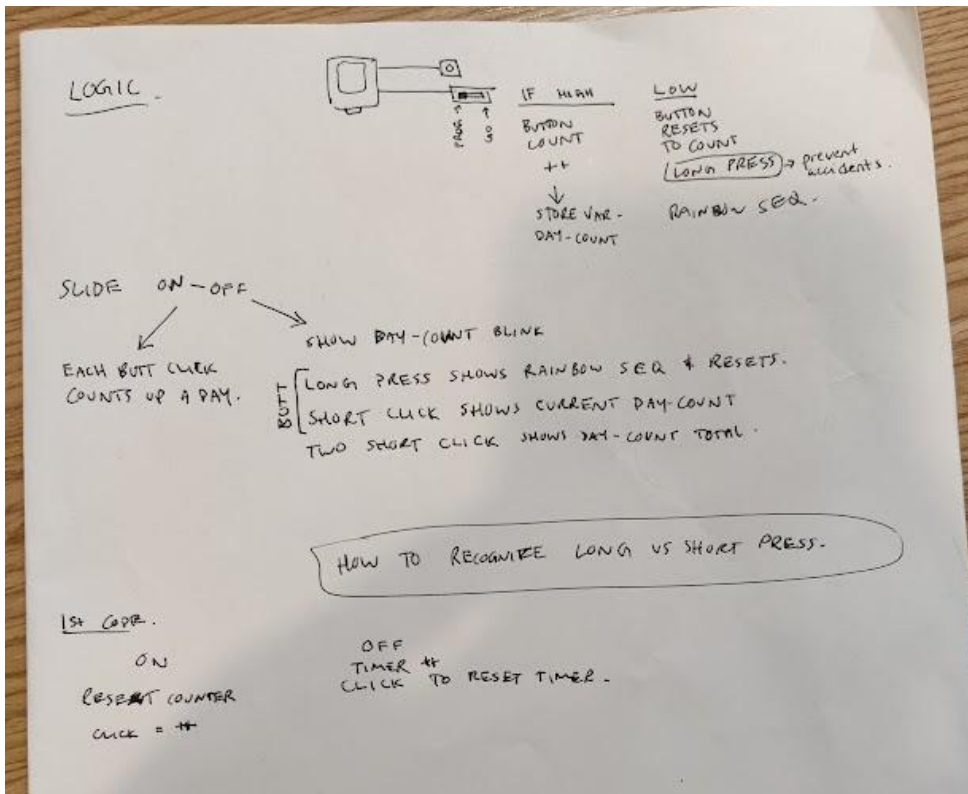 LOGIC.
PROG
ON
IF HIGH
BUTTON
COUNT
++
STORE VAR-
DAY-COUNT
LOW
BUTTON
RESETS
TO COUNT
LONG PRESS → prevent
accidents.
RAINBOW SEQ.
SLIDE ON-OFF
EACH BUTT CLICK
COUNTS UP A DAY.
SHOW DAY-COUNT BLINK
BUTT
LONG PRESS SHOWS RAINBOW SEQ & RESETS.
SHORT CLICK SHOWS CURRENT DAY-COUNT
TWO SHORT CLICK SHOWS DAY-COUNT TOTAL.
HOW TO RECOGNIZE LONG VS SHORT PRESS.
1st CODE.
ON
RESET COUNTER
CLICK = ++
OFF
TIMER ++
CLICK TO RESET TIMER.